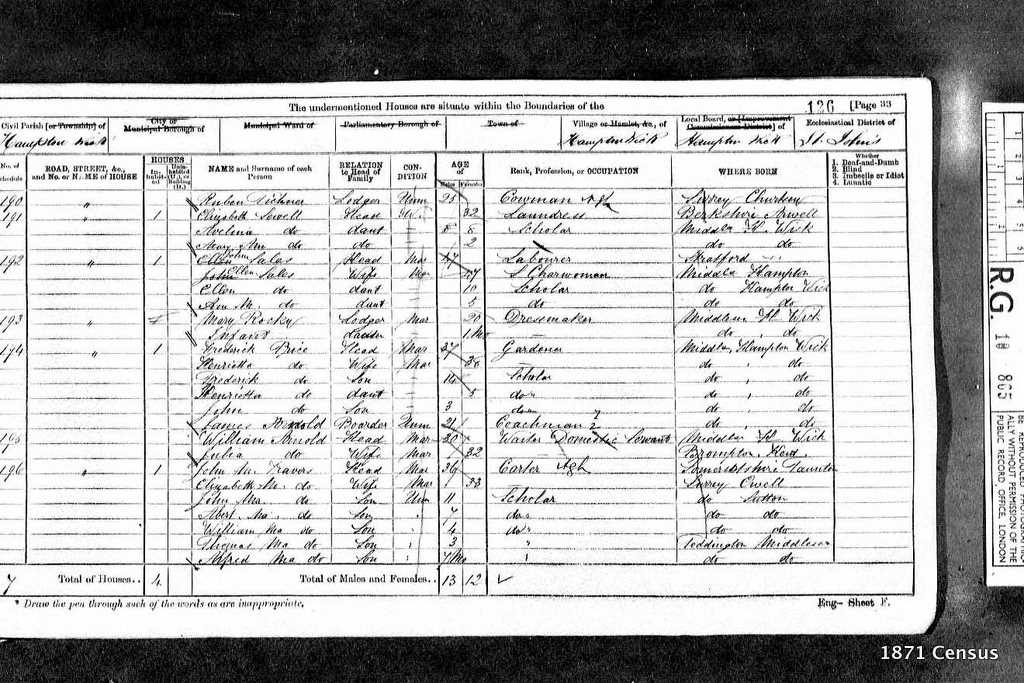 The undermentioned Houses are situate within the Boundaries of the 126 [Page 33
Civil Parish [or Township] of City or Municipal Borough of Municipal Ward of Parliamentary Borough of Town of Village or Hamlet, &c., of Local Board, or [Improvement Commissioners District] of Ecclesiastical District of
Hampton Wick Hampton Wick Hampton Wick St. John's
No. of Schedule ROAD, STREET, &c., and No. or NAME of HOUSE HOUSES Inhabited Uninhabited (U.), or Building (B.) NAME and Surname of each Person RELATION to Head of Family CONDITION AGE of Males Females Rank, Profession, or OCCUPATION WHERE BORN Whether 1. Deaf-and-Dumb 2. Blind 3. Imbecile or Idiot 4. Lunatic
190 " Ruben Lodger Unm 25 Cowman Surrey Chertsey
191 " 1 Elizabeth Sewell Head 32 Laundress Berkshire
do daut 8 Scholar Middlx H. Wick
Mary Ann do do 2 do do
192 " 1 Ellen John Sales Head Mar 47 Labourer Stratford
John Ellen Sales Wife Mar 47 Charwoman Middlx Hampton
Ellen do daut 10 Scholar do Hampton Wick
Ann M. do daut 5 do do do
193 " Mary Rocky Lodger Mar 20 Dressmaker Middlesex H Wick
Infant 1 Mo do do
194 " 1 Frederick Price Head Mar 37 Gardener Middlx Hampton Wick
Henrietta do Wife Mar 36 do do
Frederick do Son 14 Scholar do do
Henrietta do daut 5 do do do
John do Son 3 do do do
James Arnold Boarder Unm 21 Coachman do do
195 William Arnold Head Mar 30 Waiter Domestic Servant Middlx H Wick
Julia do Wife Mar 32 Brompton, Kent
196 " 1 John M. Travers Head Mar 36 Carter Agl Somersetshire Taunton
Elizabeth M. do Wife Mar 33 Surrey Ewell
John Ma. do Son Unm 11 Scholar do Sutton
Albert Ma. do Son 7 do do do
William Ma do Son 4 do do do
Thomas Ma do Son 3 " Teddington Middlesex
Alfred Ma do Son 7 Mo do do
7 Total of Houses.. 4 Total of Males and Females.. 13 12
* Draw the pen through such of the words as are inappropriate. Eng—Sheet F.
R.G. 10 865
BE REPRODUCED PHOTOGRAPHICALLY WITHOUT PERMISSION OF THE PUBLIC RECORD OFFICE, LONDON
1871 Census